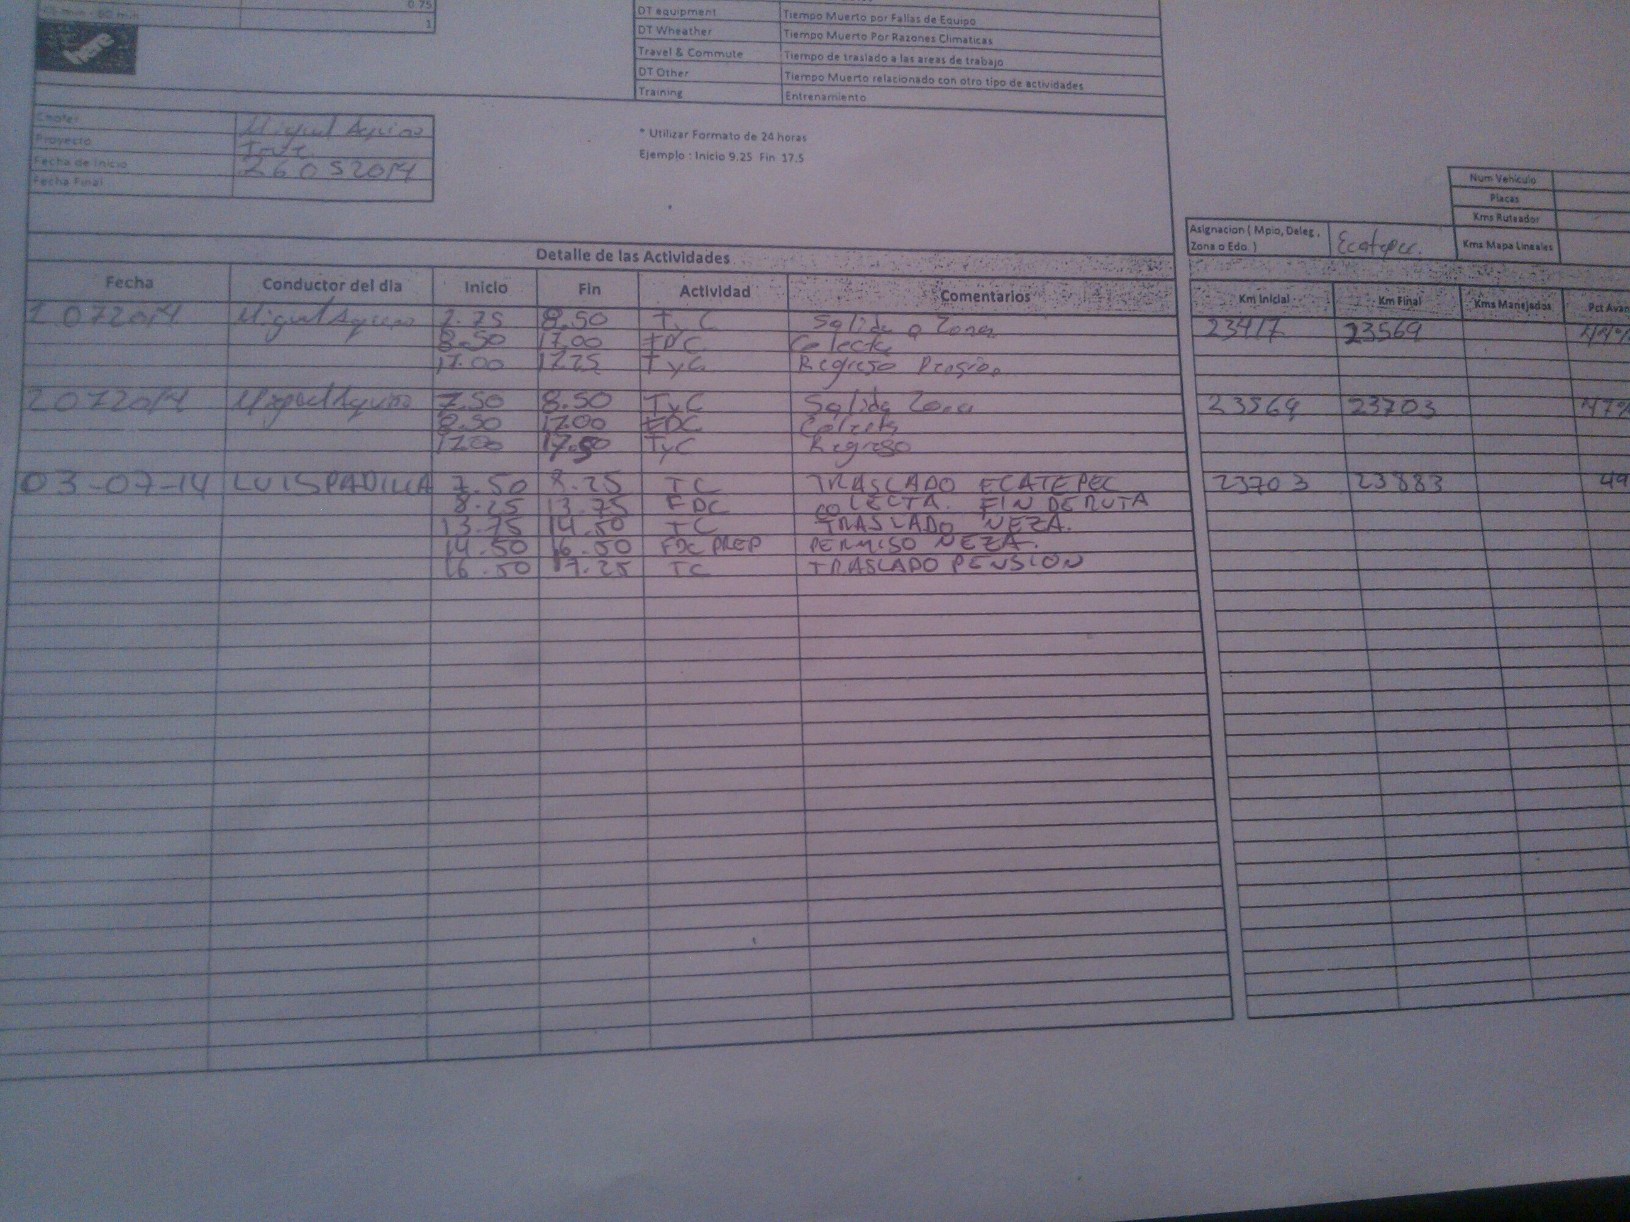 0.75
45 min - 60 min 1
DT equipment Tiempo Muerto por Fallas de Equipo
DT Wheather Tiempo Muerto Por Razones Climaticas
Travel & Commute Tiempo de traslado a las areas de trabajo
DT Other Tiempo Muerto relacionado con otro tipo de actividades
Training Entrenamiento
Chofer Miguel Aquino
Proyecto
Fecha de Inicio 26052014
Fecha Final
* Utilizar Formato de 24 horas
Ejemplo : Inicio 9.25 Fin 17.5
Num Vehiculo
Placas
Kms Ruteador
Kms Mapa Lineales
Asignacion ( Mpio, Deleg , Zona o Edo. ) Ecatepec.
Detalle de las Actividades
Fecha Conductor del dia Inicio Fin Actividad Comentarios Km Inicial Km Final Kms Manejados Pct Avan
1 072014 Miguel Aquino 7.75 8.50 TyC Salida a Zona 23417 23569
8.50 17.00 FDC Colecta
17.00 17.75 TyC Regreso
2072014 Miguel Aquino 7.50 8.50 TyC Salida Zona 23569 23703 47%
8.50 17.00 FDC Colecta
17.00 17.50 TyC Regreso
03-07-14 LUIS PADILLA 7.50 8.25 TC TRASLADO ECATEPEC 23703 23883 49
8.25 13.75 FDC COLECTA. FIN DE RUTA
13.75 14.50 TC TRASLADO NEZA.
14.50 16.50 FDC PREP PERMISO NEZA.
16.50 17.25 TC TRASLADO PENSION